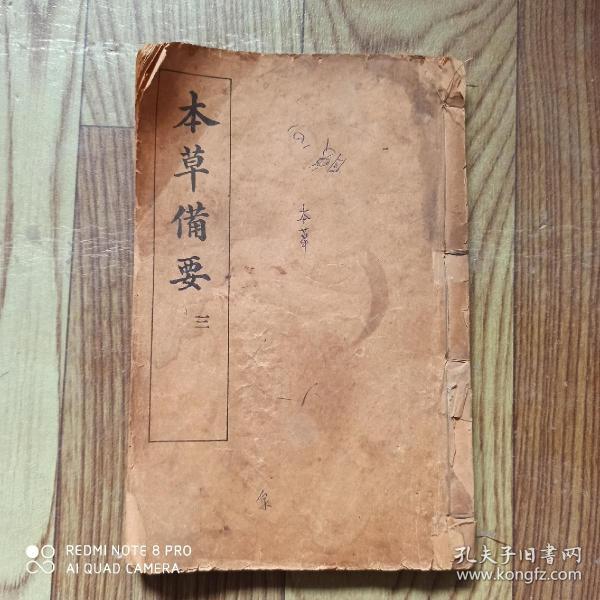 本草備要
三
本草
REDMI NOTE 8 PRO
AI QUAD CAMERA
孔夫子旧書网
www.kongfz.com